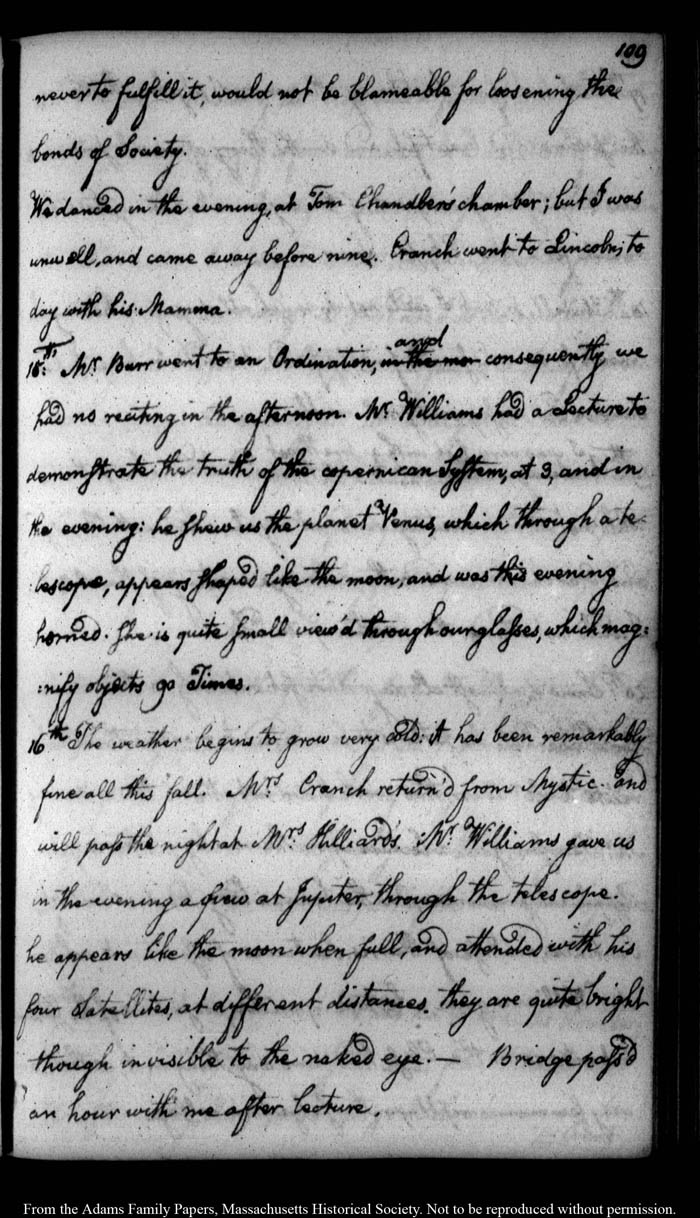 109
never to fulfill it, would not be blameable for loosening the
bonds of Society.
We danced in the evening, at Tom Chandler's chamber; but I was
unwell, and came away before nine. Cranch went to Lincoln, to
day with his Mamma.
15th: Mr. Burr went to an Ordination, in the mor and consequently we
had no reciting in the afternoon. Mr. Williams had a Lecture to
demonstrate the truth of the copernican System, at 3, and in
the evening: he shew us the planet Venus, which through a te-
lescope, appears shaped like the moon, and was this evening
horned. She is quite small view'd through our glasses, which mag:
:nify objects 90 Times.
16th The weather begins to grow very cold: it has been remarkably
fine all this fall. Mrs. Cranch return'd from Mystic. and
will pass the night at Mrs. Hilliard's. Mr. Williams gave us
in the evening a view at Jupiter, through the telescope.
he appears like the moon when full, and attended with his
four Satellites, at different distances. they are quite bright
though invisible to the naked eye. — Bridge pass'd
an hour with me after lecture.
From the Adams Family Papers, Massachusetts Historical Society. Not to be reproduced without permission.